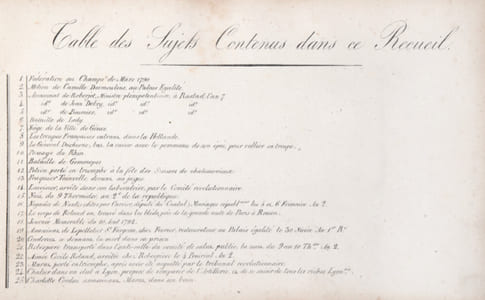 Table des Sujets Contenus dans ce Recueil.
1. Fédération au Champs de Mars 1790
2. Motion de Camille Desmoulins, au Palais Egalité
3. Assassinat de Roberjot, Ministre plénipotentiaire, à Rastad. L'an 7
4. id. de Jean Debry, id. id. id.
5. id. de id. id. id.
6. Bataille de Lody
7. Siège de la Ville de
8. Les troupes Françaises entrans, dans la Hollande.
9. Le Général Duchesne, bas la caisse avec le pommeau de son épée, pour rallier sa troupe.
10. Passage du Rhin
11. Bataille de Gemmapes
12. Patrie porté en triomphe à la fête des Suisses de chateauvieux
13. Fouquier Tainville, devant, au juges
14. Lavoisier, arrêté dans son laboratoire, par le Comité révolutionnaire
15. Nuit, du 9 Thermidor, an 2 de la république
16. Noyades de Nantes dites par Carrier, député du Cantal, Mariages républ. les 4 et 6 Frimaire An 2
17. Le corps de Roland en travers dans les bleds, près de la grande route de Paris à Rouen.
18. Journée Mémorable du 10 Aout 1792.
19. Assassinat, de Lepelletier St Fargeau, chez Fevrier, restaurateur au Palais égalité le 30
20. Condorcet se donnant, la mort dans sa prison
21. Robespierre transporté dans l'anti-salle du comité de salus public, la nuit du 9 au 10 Th. An 2.
22. Aimée Cécile Renaud, arrêtée chez Robespierre le 4 Prairial An 2.
23. Marat, porté en triomphe, après avoir été acquitté par le tribunal révolutionnaire.
24. Chalier dans un club à Lyon, propose de s'emparer de l'Artillerie, et de se saisir de tous les riches Lyon.
25. Charlotte Corday assassinant, Marat, dans son bain.